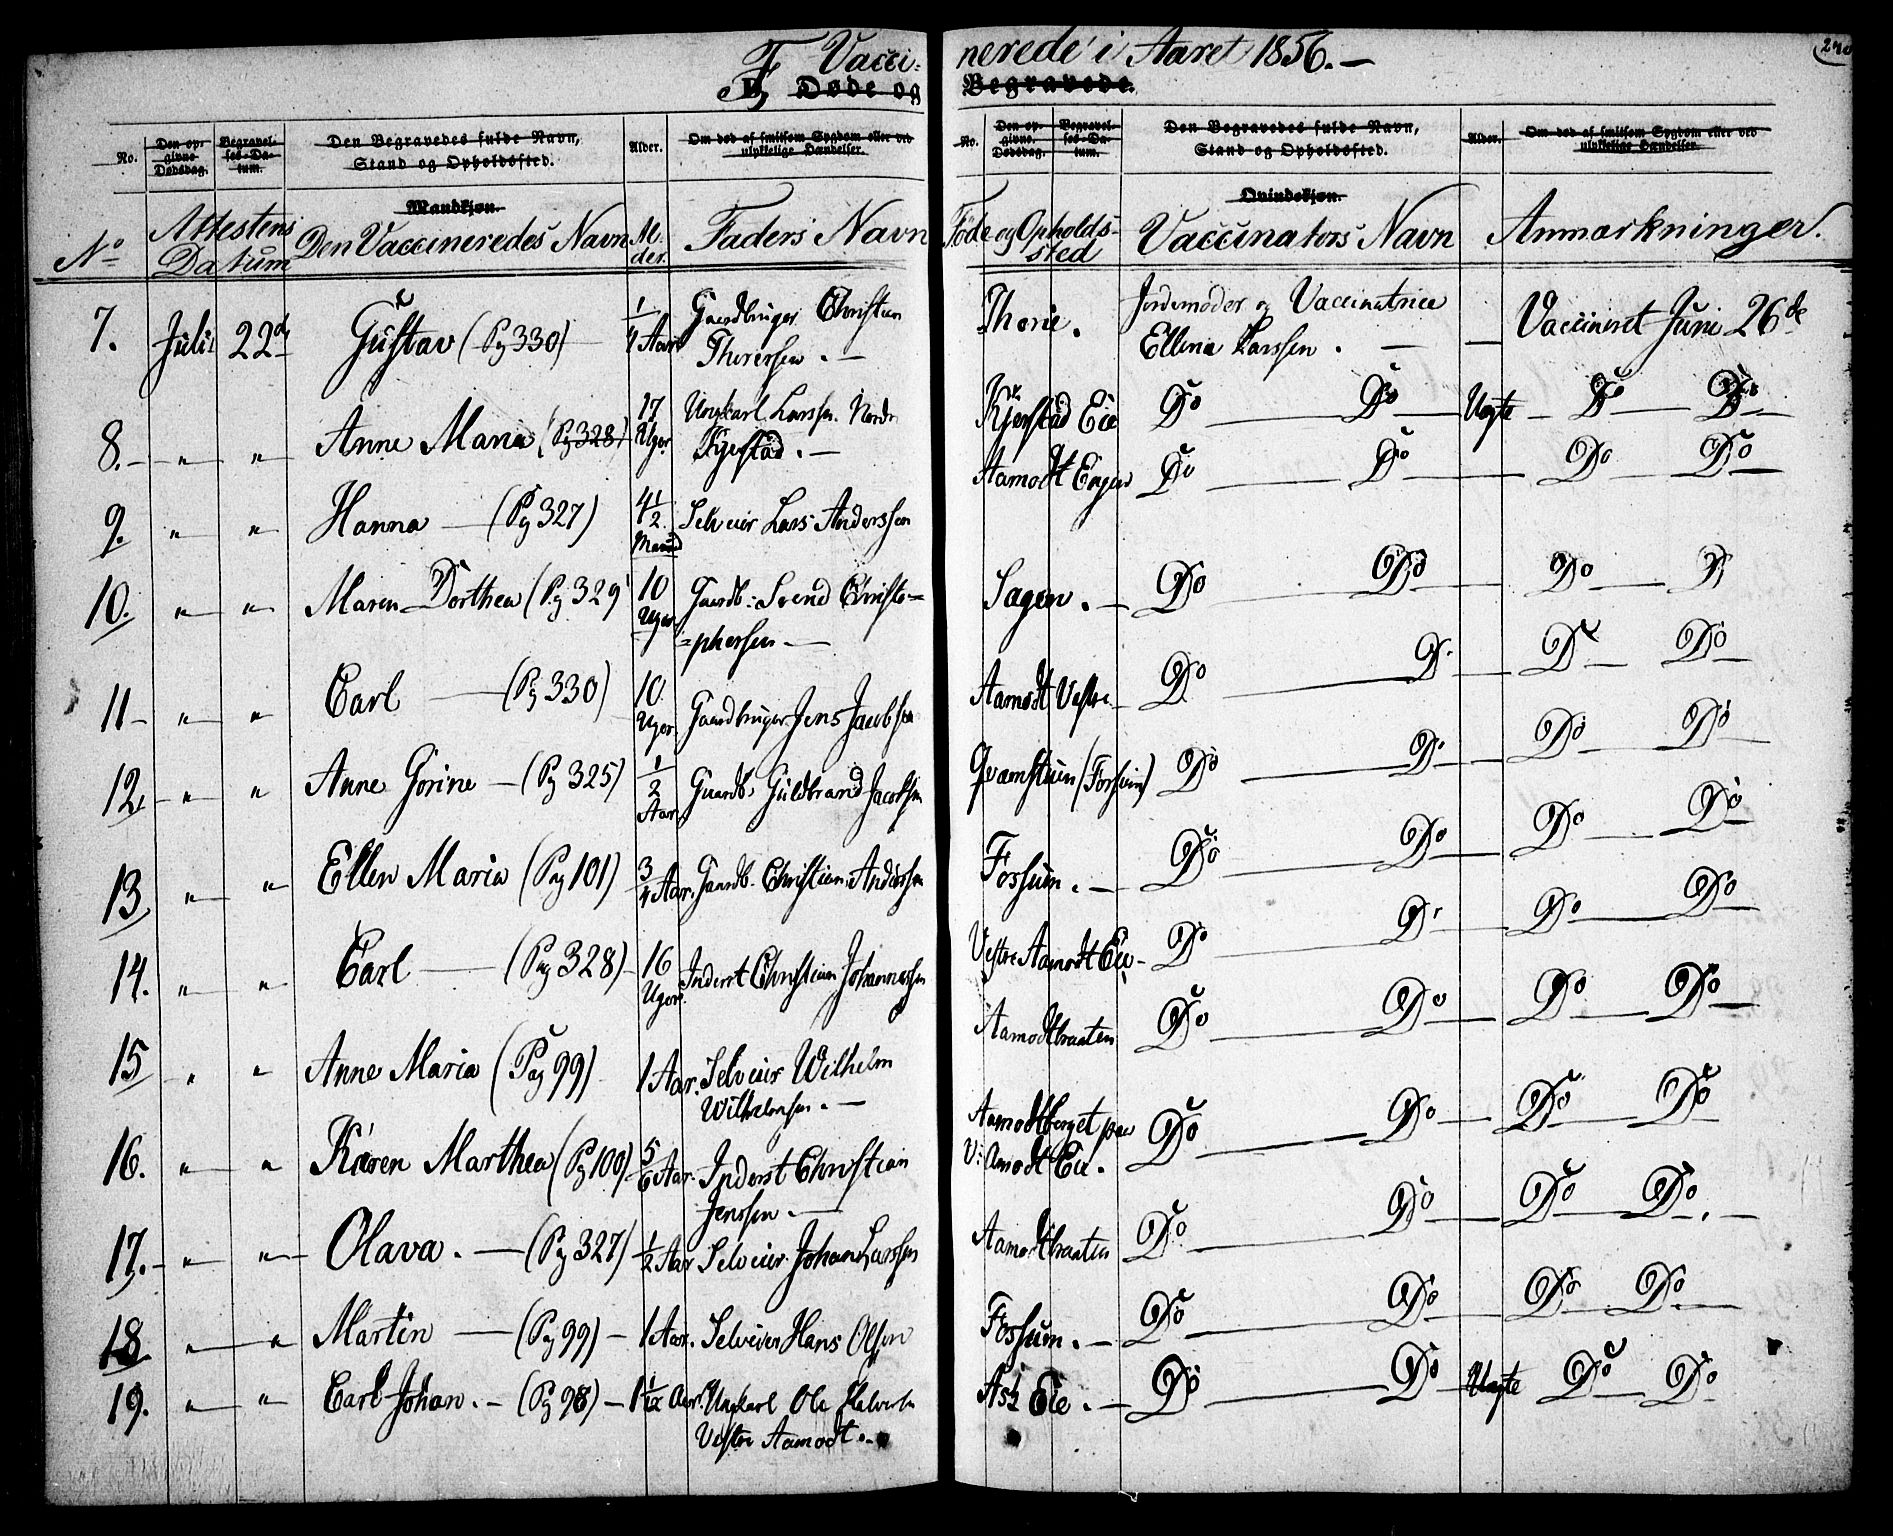 F, Vacci-nerede i Aaret 1856. —
240
D. Døde og Begravede.
No. Den opgivne Dødsdag. Begravelses-Datum. Den Begravedes fulde Navn, Stand og Opholdssted. Alder. Om død af smitsom Sygdom eller ved ulykkelige Hændelser. No. Den opgivne Dødsdag. Begravelses-Datum. Den Begravedes fulde Navn, Stand og Opholdssted. Alder. Om død af smitsom Sygdom eller ved ulykkelige Hændelser.
Mandkjøn. Qvindekjøn.
No Attestens Datum Den Vaccineredes Navn Alder. Faders Navn Føde og Opholdssted Vaccinators Navn Anmærkninger.
7. Juli 22de Gustav (Pg 330) 1/4 Aar Gaardbruger Christian Thorersen. — Thorie. Jordemoder og Vaccinatrice Ellena Larssen. — Vaccineret Juni 26de
8. — " — " Anne Maria (Pg 328) 17 Uger Ungkarl Larssen. Nordr Kjerstad. — Kjerstad Eie Do — Do — Uægte — Do — Do
9. " — " Hanna — (Pg 327) 4 1/2 Maand Selveier Lars Anderssen Aamodt Engen Do — Do — Do — Do
10. " — " Maren Dorthea (Pg 329) 10 Uger Gaardb: Svend Christo=phersen — Sagen. — Do Do — Do — D
11 — " — " Carl — (Pg 330) 10 Uger Gaardbruger Jens Jacobsen Aamodt Vestre Do — Do — Do — Do
12. — " — " Anne Gorine — (Pg 325) 1/2 Aar Gaardb. Guldbrand Jacobsen Qvamstuen (Forsum) Do — Do — Do — Do
13. " — " Ellen Maria (Pag 101) 3/4 Aar. Gaardb. Christian Anderssen Fossum. — Do — Do — Do — Do
14. " — " Carl — (Pag 328) — 16 Uger Inderst Christian Johannessen Vestre Aamodt Eie — Do — Do — Do — Do
15 " — " Anne Maria (Pag 99) 1 Aar. Selveier Wilhelm Wilhelmsen. — Aamodtbraaten Do — Do — Do — Do
16. " — " Karen Marthea (Pg 100) 5/6 Aar. Inderst Christian Jenssen. — Aamodtberget paa V: Amodt Eie. Do — Do — Do — Do
17. — " — " Olava. — (Pg 327) 1/2 Aar Selveier Johan Larssen Aamodtbraaten Do — Do — Do — Do. —
18 " — " Martin — (Pag 99) — 1 Aar. Selveier Hans Olsen Fossum. — Do — Do — Do — Do —
19. " — " Carl Johan. — (Pg 98) — 1 1/12 Aar. Ungkarl Ole Halvors Vestre Aamodt. — Ask Eie. — Do — Do — Uægte Do — Do